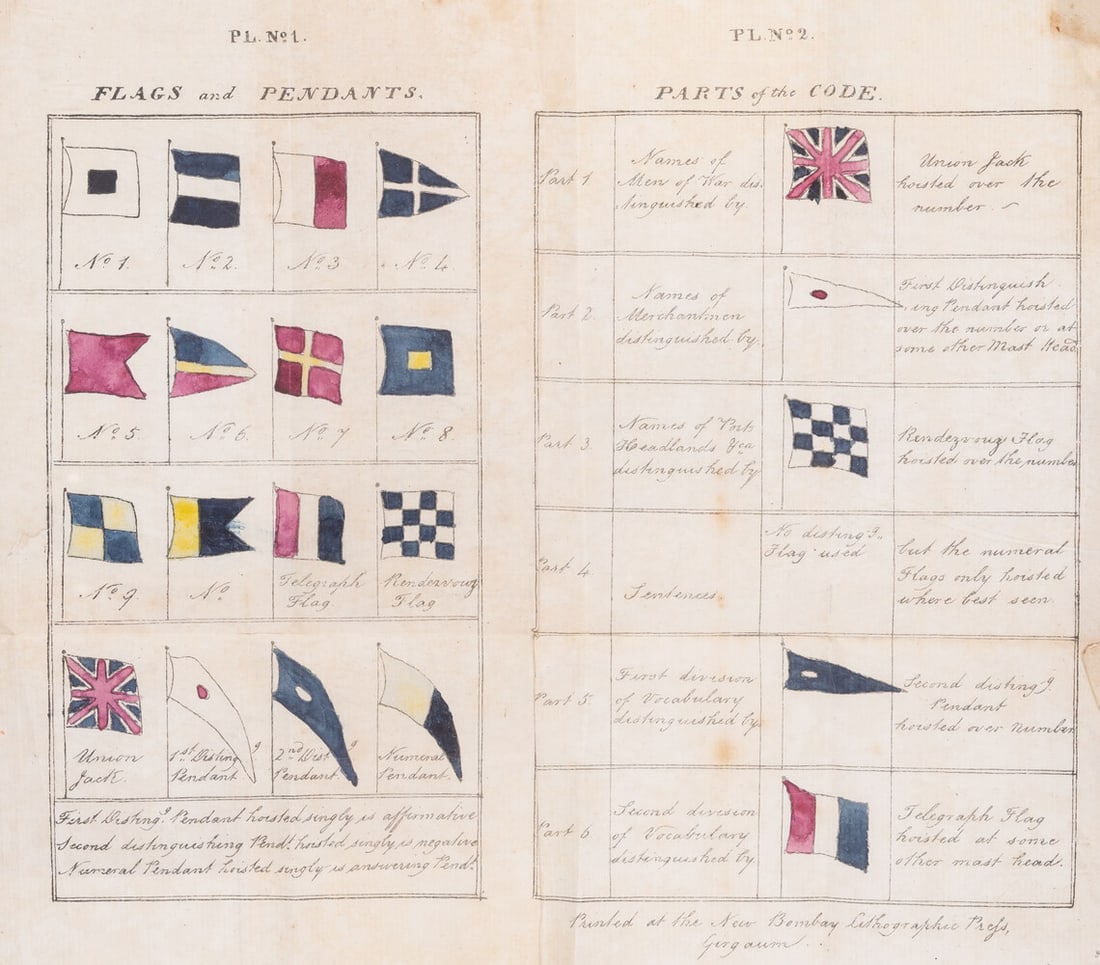 PL. Nº 1.
FLAGS and PENDANTS.
Nº 1.
Nº 2.
Nº 3
Nº 4.
Nº 5
Nº 6.
Nº 7
Nº 8.
Nº 9.
Nº
Telegraph
Flag
Rendezvouz
Flag
Union
Jack.
1st Disting g
Pendant
2nd Dist g
Pendant.
Numeral
Pendant.
First Disting.g Pendant hoisted singly is affirmative
Second distinguishing Pend.t hoisted singly is negative
Numeral Pendant hoisted singly is answering Pend.t
PL. Nº 2.
PARTS of the CODE.
Part 1
Names of
Men of War dis.
tinguished by
Union Jack
hoisted over the
number.
Part 2.
Names of
Merchantmen
distinguished by.
First Distinguish
ing Pendant hoisted
over the number or at
some other Mast Head
Part 3.
Names of Port
Headlands &ca
distinguished by
Rendezvouz Flag
hoisted over the number
Part 4.
Sentences.
No disting g.
Flag used
but the numeral
Flags only hoisted
where best seen.
Part 5.
First division
of Vocabulary
distinguished by
Second disting g.
Pendant
hoisted over Number
Part 6
Second division
of Vocabulary
distinguished by.
Telegraph Flag
hoisted at some
other mast head.
Printed at the New Bombay Lithographic Press,
Girgaum.